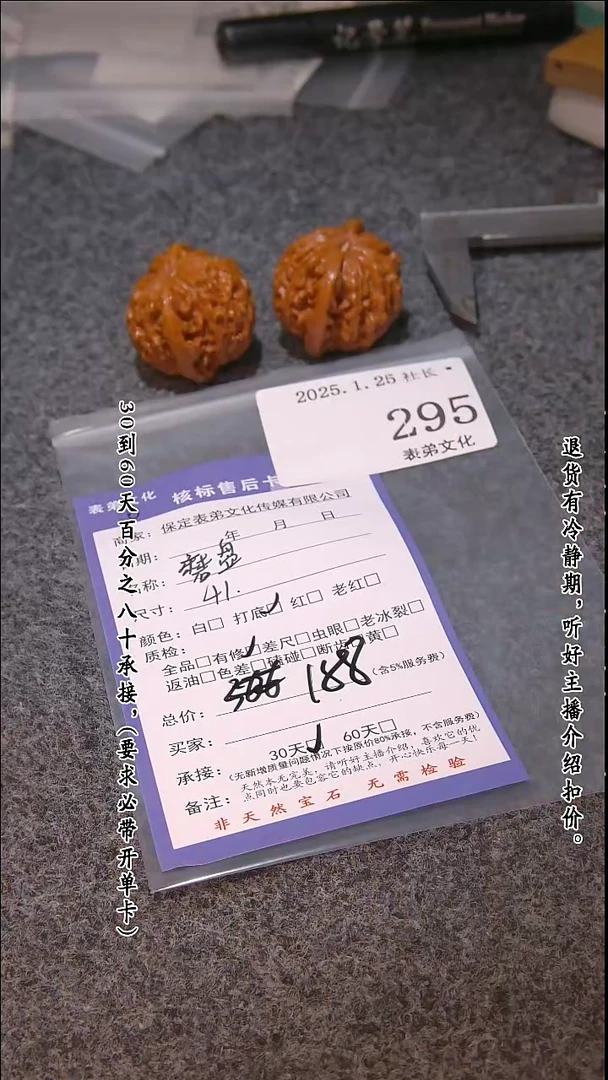 记号笔
2025.1.25 社长
295
表弟文化
表弟文化 核标售后卡
商家：保定表弟文化传媒有限公司
日期： 年 月 日
名称： 磨盘
尺寸： 41.
颜色：白□ 打底□ 红□ 老红□
质检：
全品□有修□差尺□虫眼□老冰裂□
返油□色差□磕碰□断齿□黄□
总价： 188 (含5%服务费)
买家：
30天 60天□
承接：(无新增质量问题情况下按原价80%承接，不含服务费)
备注：天然本无完美，请听好主播介绍，喜欢它的优
点同时也要包容它的缺点，开心快乐每一天！
非天然宝石 无需检验
30到60天百分之八十承接，(要求必带开单卡)
退货有冷静期，听好主播介绍扣价。